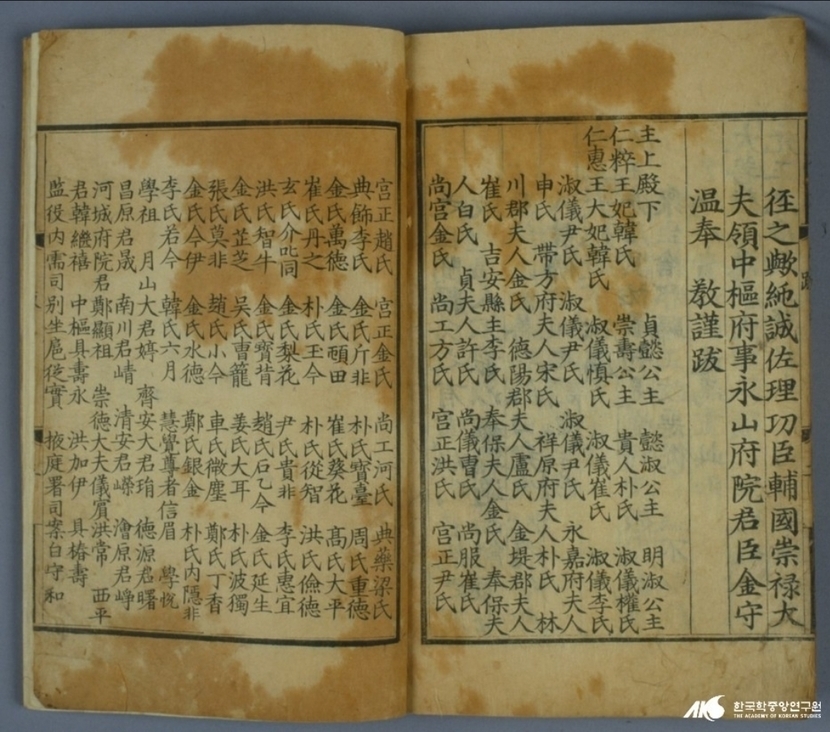 径之歟純誠佐理功臣輔國崇禄大
夫領中樞府事永山府院君臣金守
温奉 教謹跋
主上殿下 貞懿公主 懿淑公主 明淑公主
仁粹王妃韓氏 崇壽公主 貴人朴氏 淑儀權氏
仁惠王大妃韓氏 淑儀慎氏 淑儀崔氏 淑儀李氏
淑儀尹氏 淑儀尹氏 淑儀尹氏 永嘉府夫人
申氏 帶方府夫人宋氏 祥原府夫人朴氏 林
川郡夫人金氏 德陽郡夫人盧氏 金堤郡夫人
崔氏 吉安縣主李氏 奉保夫人金氏 奉保夫
人白氏 貞夫人許氏 尚儀曹氏 尚服崔氏
尚宮金氏 尚工方氏 宮正洪氏 宮正尹氏
宮正趙氏 宮正金氏 尚工河氏 典藥梁氏
典飾李氏 金氏斤非 朴氏寶臺 周氏重德
金氏萬德 金氏頤田 崔氏葵花 髙氏大平
崔氏丹之 朴氏王今 朴氏從智 洪氏儉德
玄氏介叱同 金氏梨花 尹氏貴非 李氏惠宜
洪氏智牛 金氏寶背 趙氏石乙今 金氏延生
金氏芷芝 吳氏曹籠 姜氏大耳 朴氏波獨
張氏莫非 趙氏小今 車氏微塵 鄭氏丁香
金氏今伊 金氏水德 鄭氏銀金 朴氏内隱非
李氏若今 韓氏六月 慧覺尊者信眉 學悅
學祖 月山大君婷 齊安大君琄 德源君曙
昌原君晟 南川君崝 清安君嶸 澮原君崢
河城府院君鄭顯祖 崇德大夫儀賓洪常 西平
君韓繼禧 中樞具壽永 洪加伊 具椿壽
監役内需司别坐扈從實 掖庭署司案白守和
AKS 한국학중앙연구원
THE ACADEMY OF KOREAN STUDIES